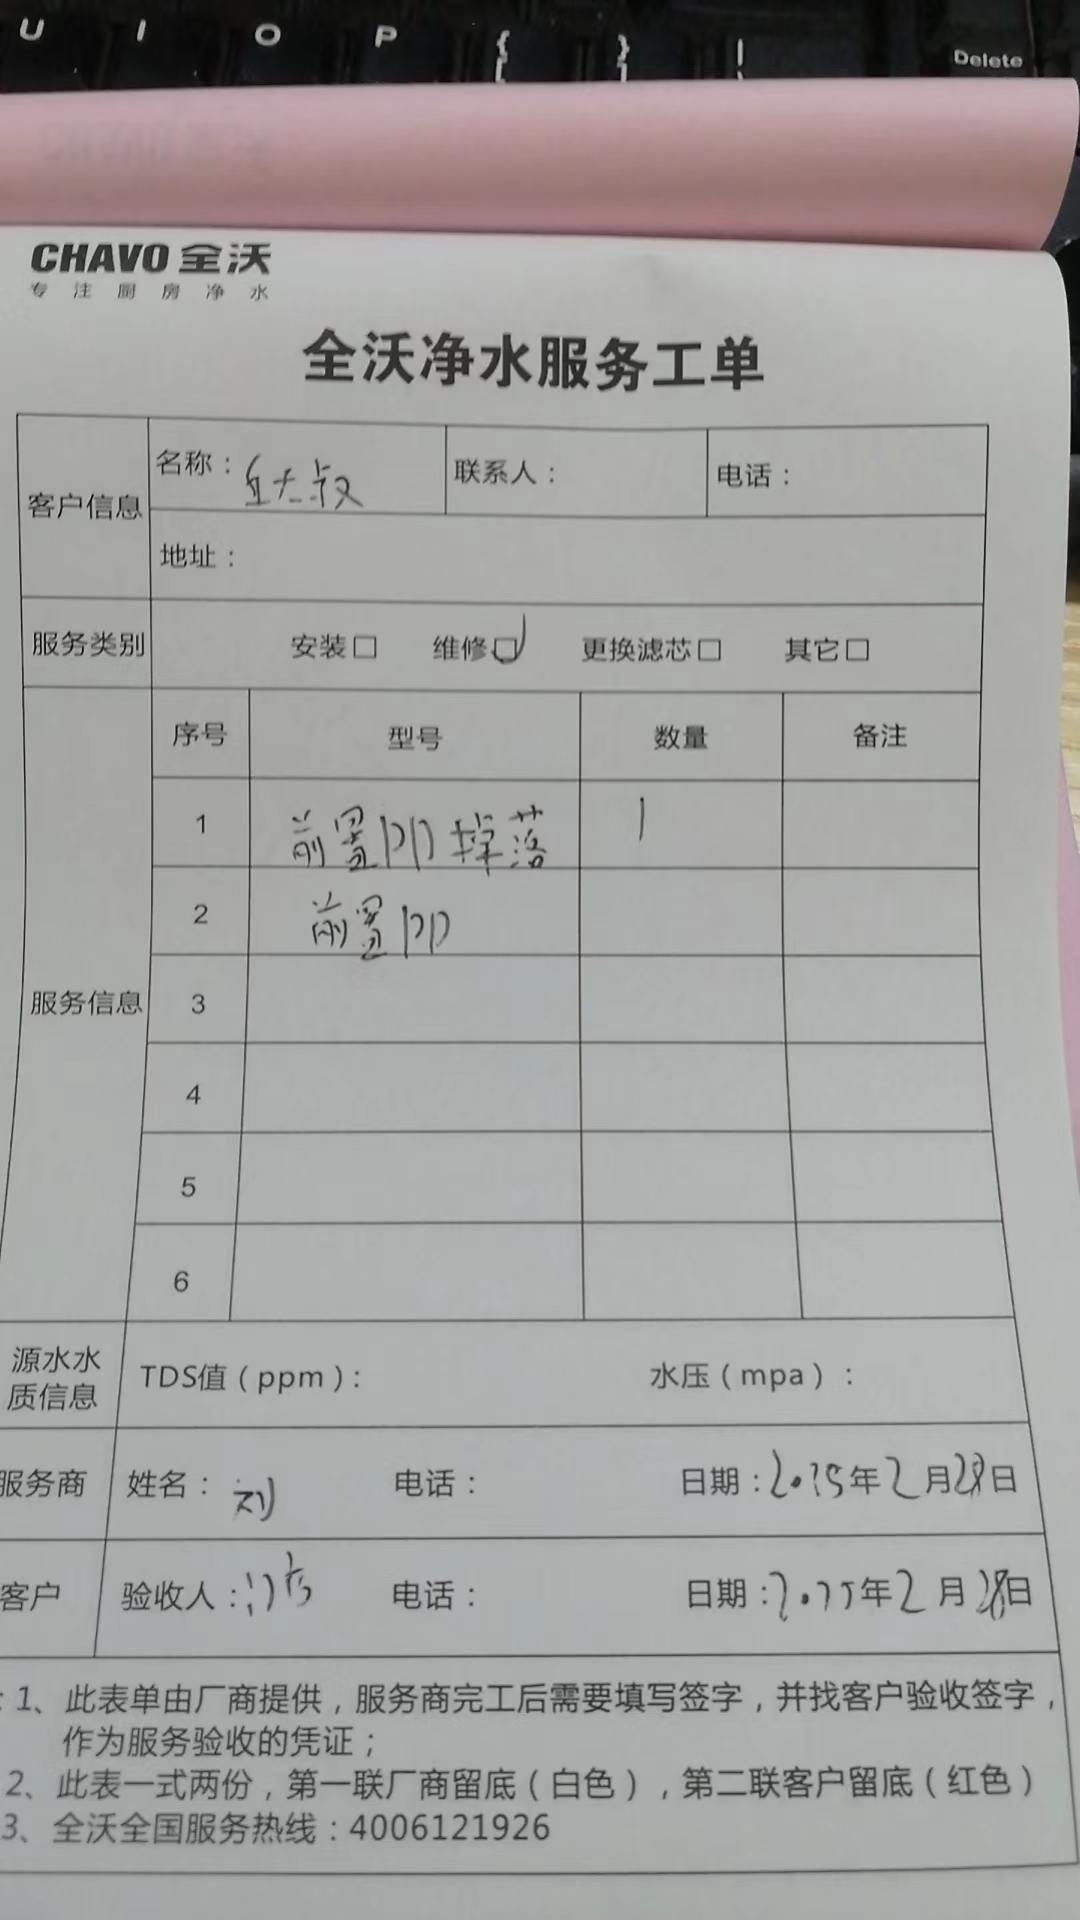 U I O P { } |
[ ] \ Delete
CHAVO 全沃
专注厨房净水
全沃净水服务工单
客户信息 名称： 大叔 联系人： 电话：
地址：
服务类别 安装□ 维修□ 更换滤芯□ 其它□
服务信息 序号 型号 数量 备注
1 前置PP掉落 1
2 前置PP
3
4
5
6
源水水质信息 TDS值（ppm）： 水压（mpa）：
服务商 姓名：刘 电话： 日期：2025年2月28日
客户 验收人： 电话： 日期：2025年2月28日
：1、此表单由厂商提供，服务商完工后需要填写签字，并找客户验收签字，
作为服务验收的凭证；
2、此表一式两份，第一联厂商留底（白色），第二联客户留底（红色）
3、全沃全国服务热线：4006121926